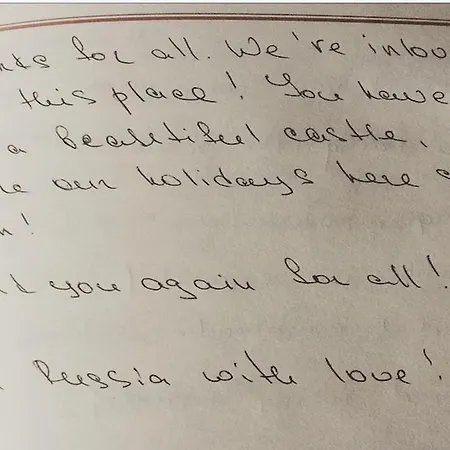 for all. We're in love
this place! You have
a beautiful castle,
our holidays here
you again for all!
Russia with love!